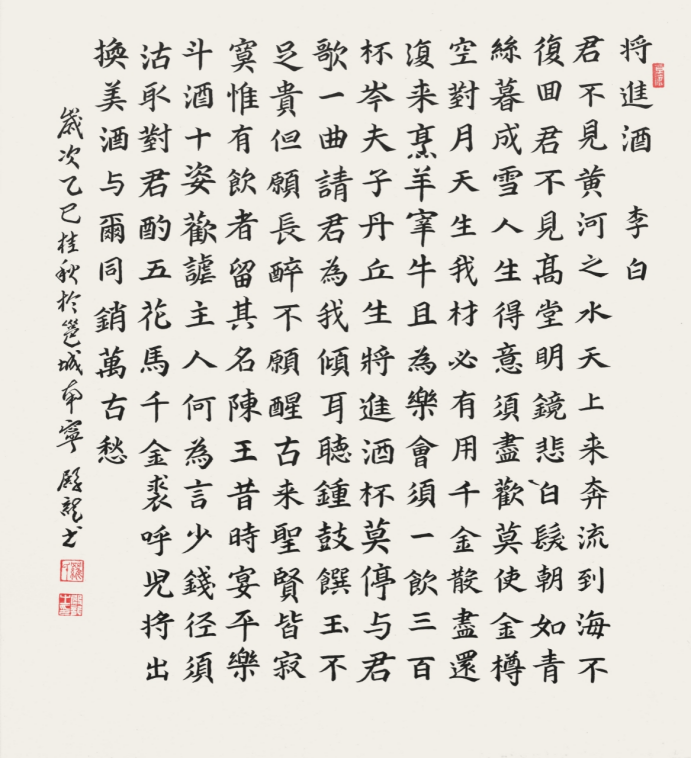 将進酒 李白
君不見黄河之水天上来奔流到海不
復回君不見髙堂明鏡悲白髮朝如青
絲暮成雪人生得意須盡歡莫使金樽
空對月天生我材必有用千金散盡還
復来烹羊宰牛且為樂會須一飲三百
杯岑夫子丹丘生將進酒杯莫停与君
歌一曲請君為我傾耳聽鍾鼓饌玉不
足貴但願長醉不願醒古来聖賢皆寂
寞惟有飲者留其名陳王昔時宴平樂
斗酒十姿歡謔主人何為言少錢径須
沽取對君酌五花馬千金裘呼児将出
換美酒与爾同銷萬古愁
歲次乙巳桂秋於邕城南寧 龍书